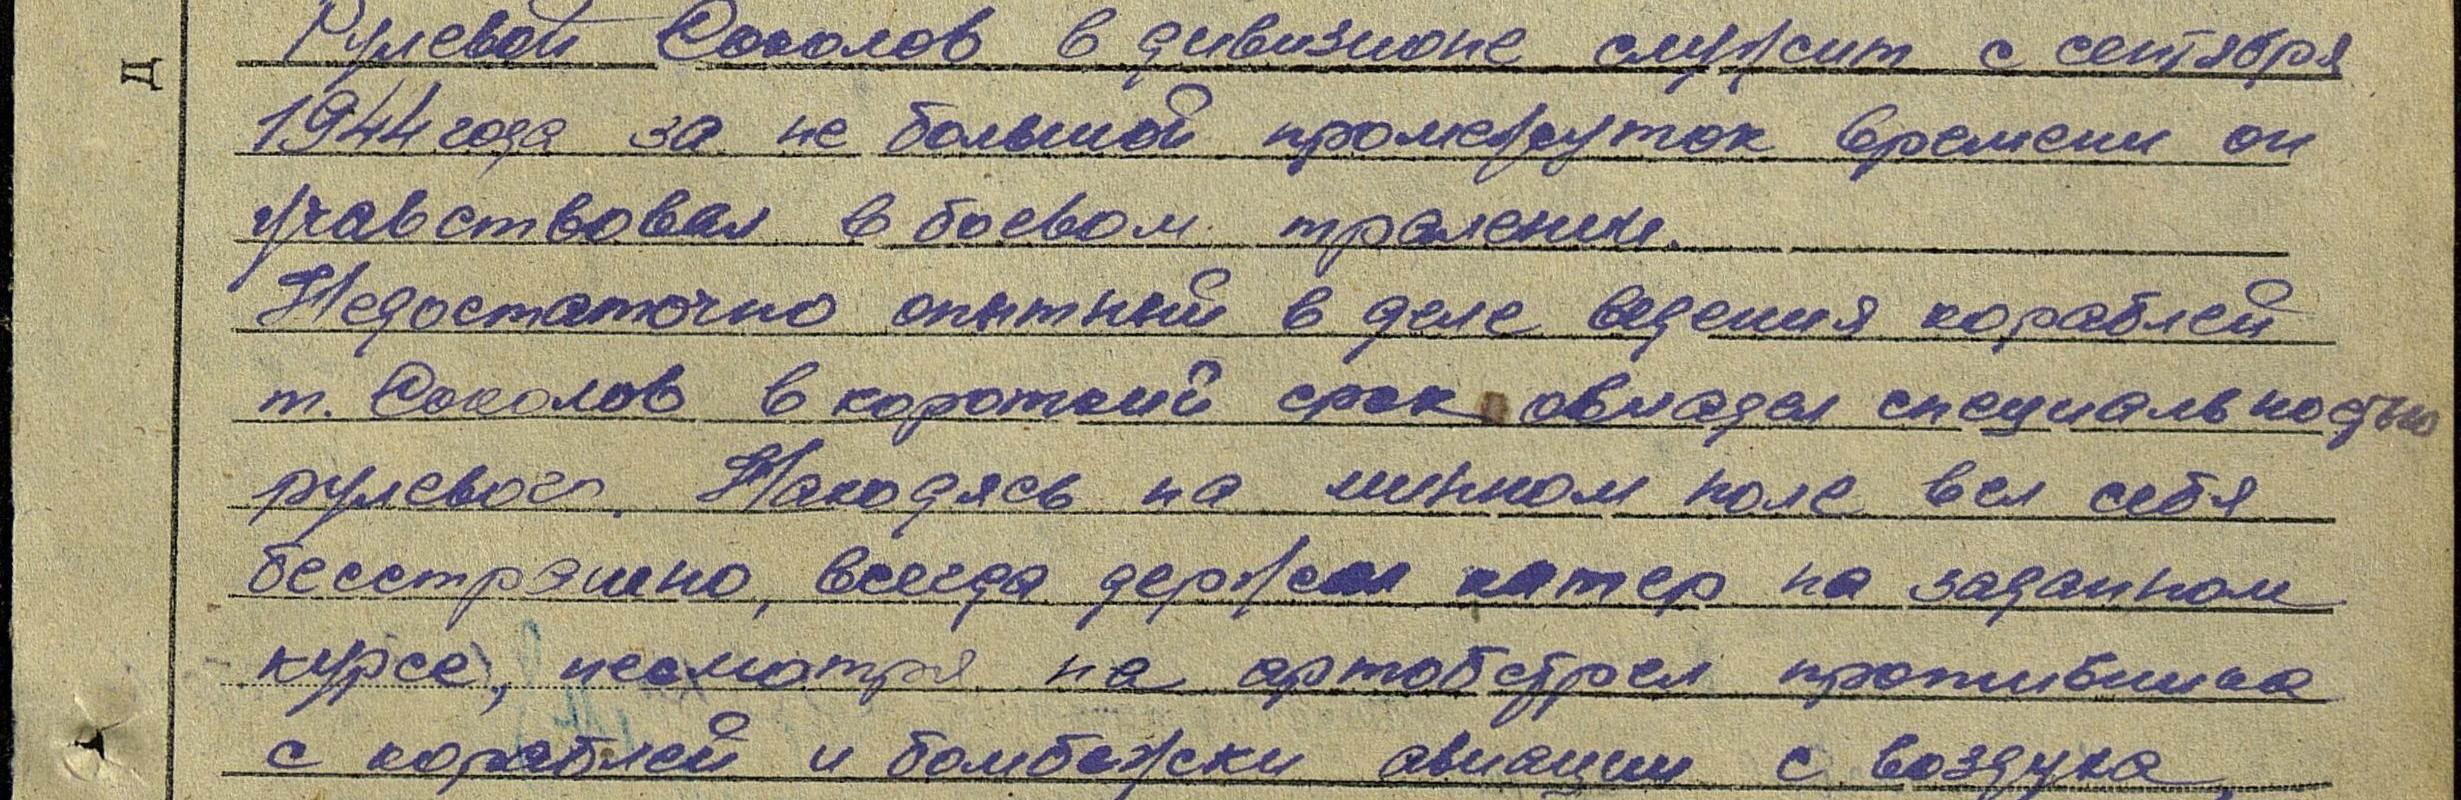 Рулевой Соколов в дивизионе служит с сентября
1944 года за не большой промежуток времени он
учавствовал в боевом тралении.
Недостаточно опытный в деле ведения кораблей
т. Соколов в короткий срок овладел специальностью
рулевого. Находясь на минном поле вел себя
бесстрашно, всегда держал катер на заданном
курсе, несмотря на артобстрел противника
с кораблей и бомбежки авиации с воздуха,
Д